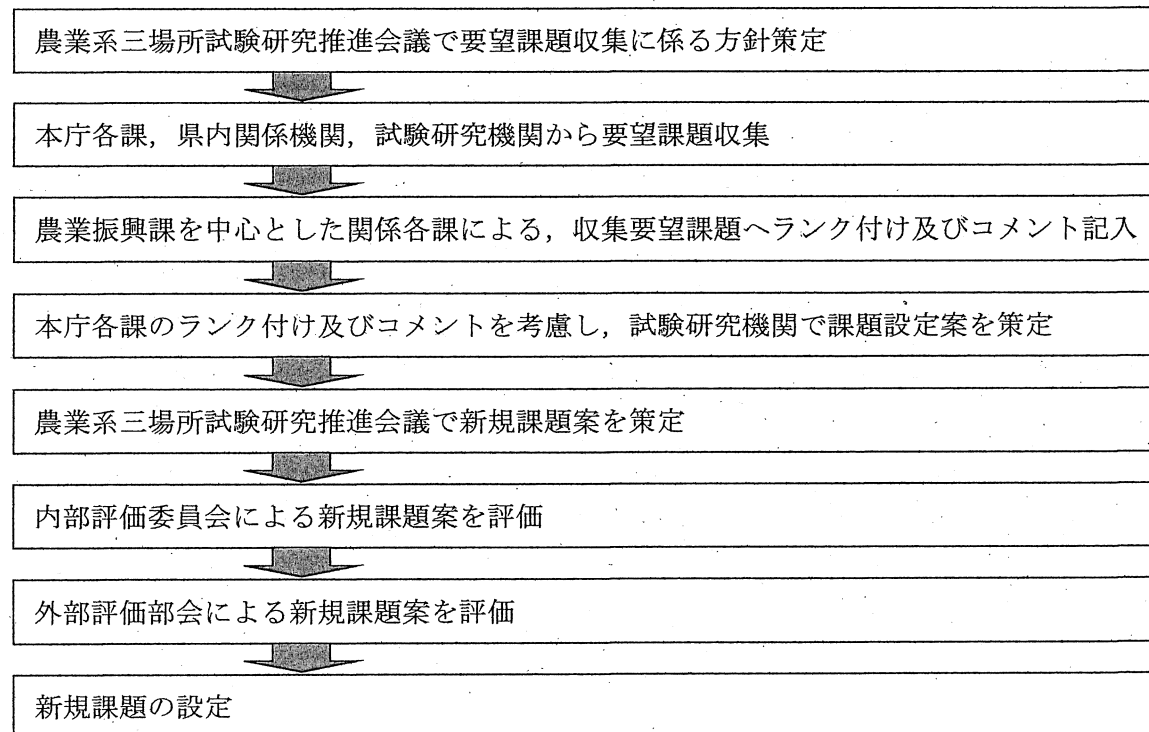 農業系三場所試験研究推進会議で要望課題収集に係る方針策定
本庁各課，県内関係機関，試験研究機関から要望課題収集
農業振興課を中心とした関係各課による，収集要望課題へランク付け及びコメント記入
本庁各課のランク付け及びコメントを考慮し，試験研究機関で課題設定案を策定
農業系三場所試験研究推進会議で新規課題案を策定
内部評価委員会による新規課題案を評価
外部評価部会による新規課題案を評価
新規課題の設定